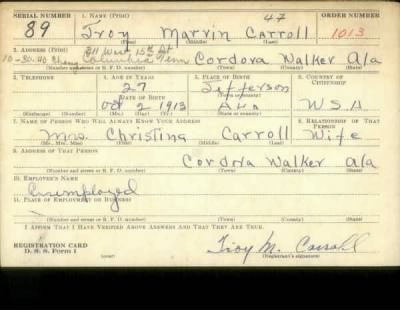 SERIAL NUMBER 1. NAME (Print) 47 ORDER NUMBER
89 Troy Marvin Carroll 1013
(First) (Middle) (Last)
2. ADDRESS (Print) 811 West 15th St
10-30-40 Columbia Tenn Cordova Walker Ala
(Number and street or R. F. D. number) (Town) (County) (State)
3. TELEPHONE 4. AGE IN YEARS 5. PLACE OF BIRTH 6. COUNTRY OF CITIZENSHIP
27 Jefferson
DATE OF BIRTH (Town or county)
Oct 2 1913 Ala U S A
(Exchange) (Number) (Mo.) (Day) (Yr.) (State or country)
7. NAME OF PERSON WHO WILL ALWAYS KNOW YOUR ADDRESS 8. RELATIONSHIP OF THAT PERSON
Mrs. Christina Carroll Wife
(Mr., Mrs., Miss) (First) (Middle) (Last)
9. ADDRESS OF THAT PERSON
Cordova Walker Ala
(Number and street or R. F. D. number) (Town) (County) (State)
10. EMPLOYER'S NAME
Unemployed
11. PLACE OF EMPLOYMENT OR BUSINESS
(Number and street or R. F. D. number) (Town) (County) (State)
I AFFIRM THAT I HAVE VERIFIED ABOVE ANSWERS AND THAT THEY ARE TRUE.
REGISTRATION CARD
D. S. S. Form 1 Troy M. Carroll
(over) (Registrant's signature)